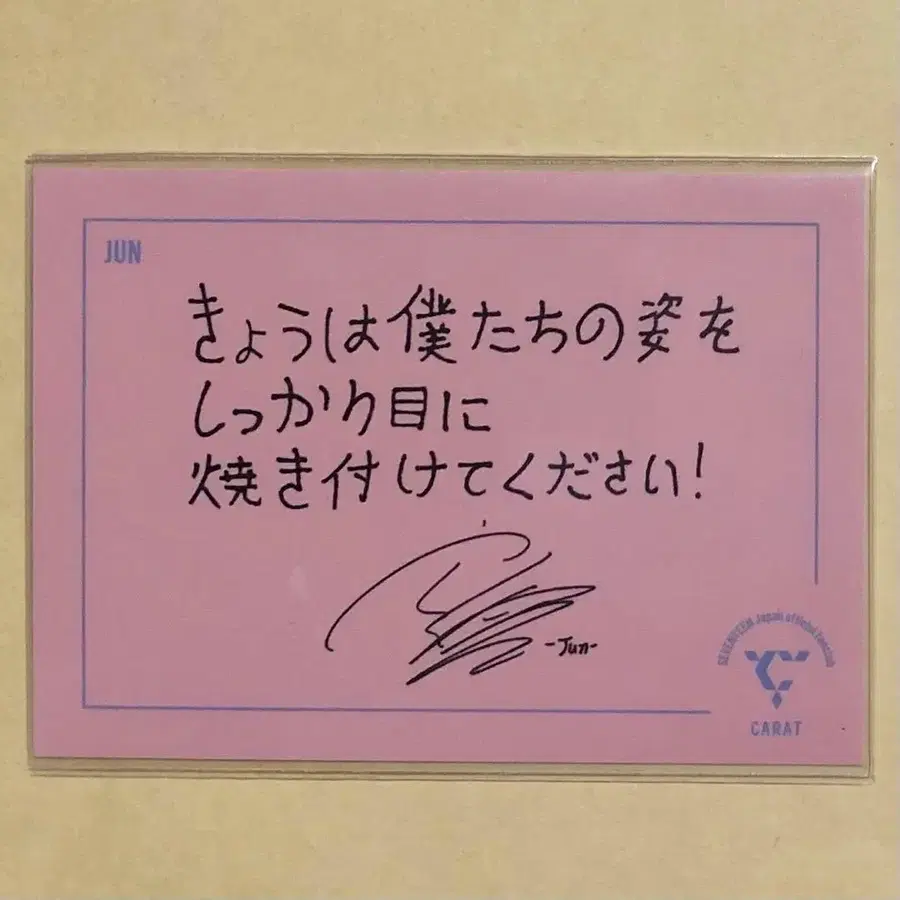 JUN
きょうは僕たちの姿を
しっかり目に
焼き付けてください!
-Jun-
SEVENTEEN Japan official fanclub
CARAT